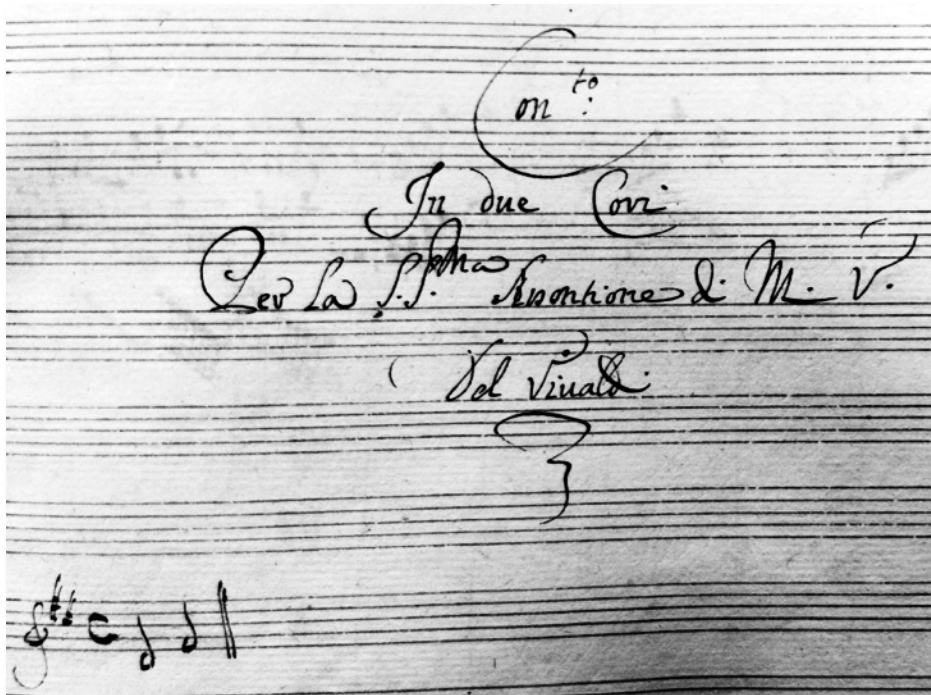 Con.to
In due Cori
Per La S.S.ma Assontione di M. V.
Del Viualdi